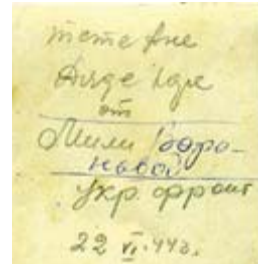 тете Ане
Дяде Іде
от
Мили Воро-
ньвой
Укр. фронт
22 VI.44г.